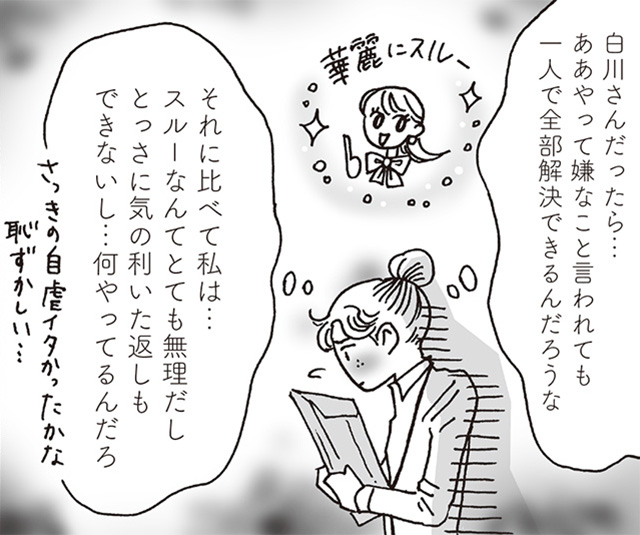 白川さんだったら…
ああやって嫌なこと言われても
一人で全部解決できるんだろうな
華麗にスルー
それに比べて私は…
スルーなんてとても無理だし
とっさに気の利いた返しも
できないし…何やってるんだろ
さっきの自虐イタかったかな
恥ずかしい…